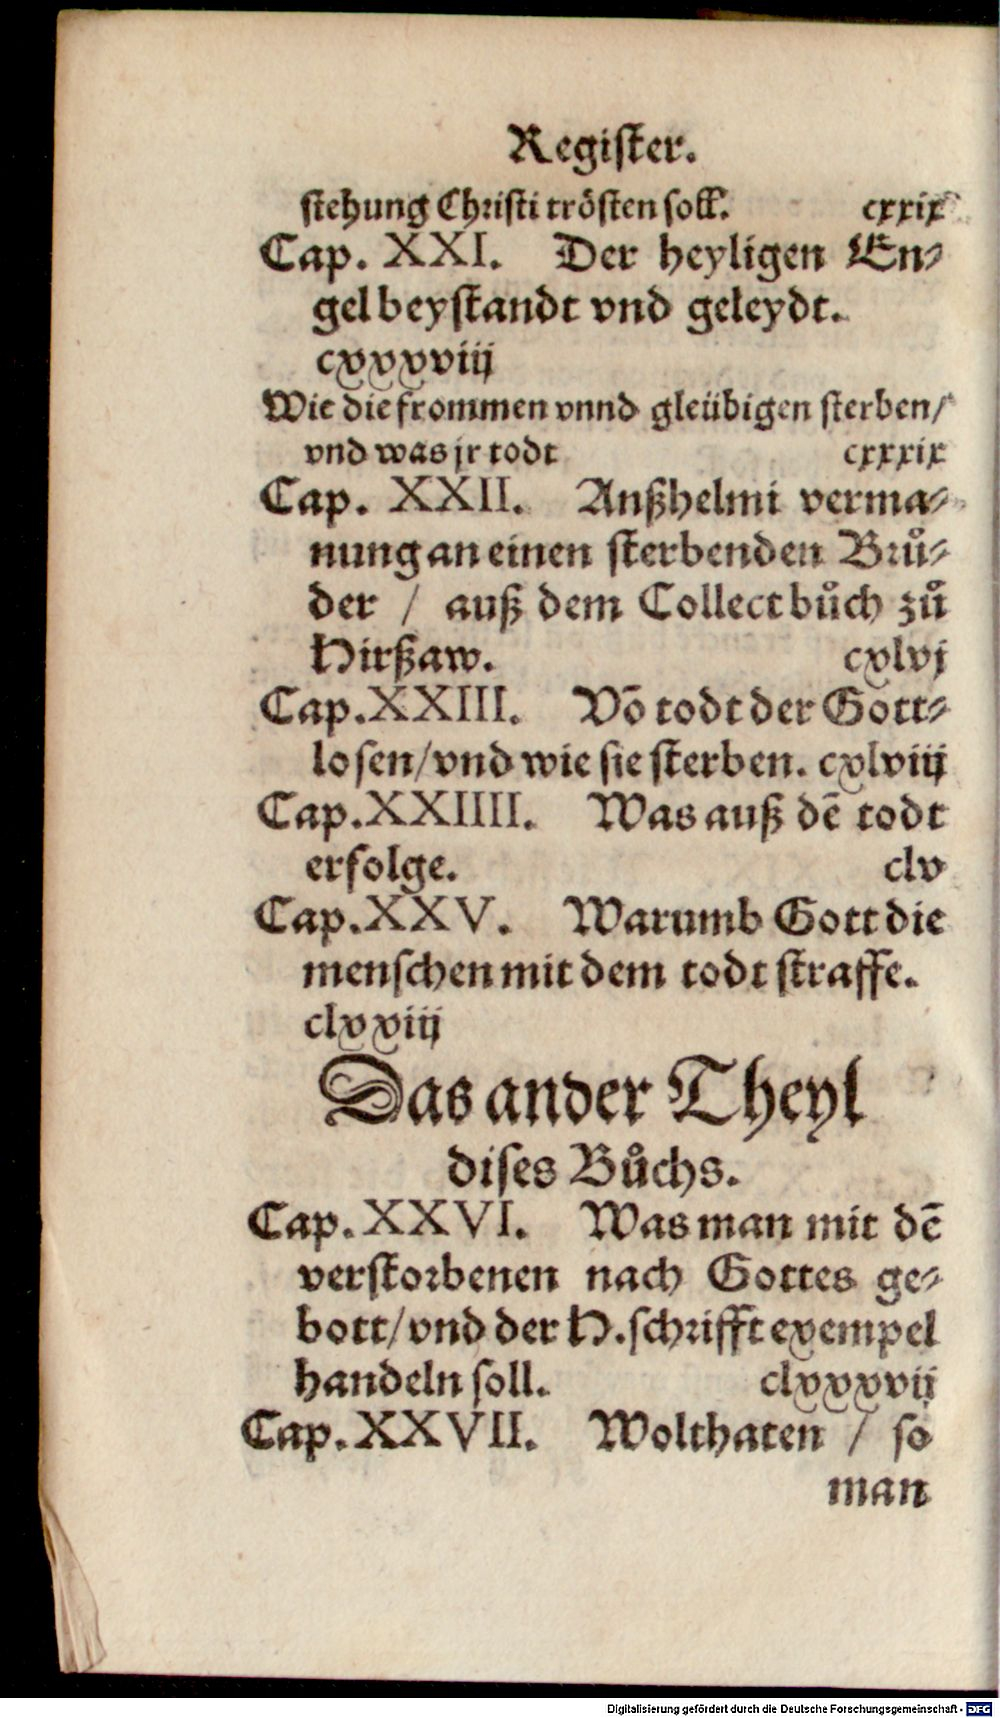 Register.
stehung Christi trösten soll. cxxix
Cap. XXI. Der heyligen En-
gel beystandt vnd geleydt.
cxxxviij
Wie die frommen vnnd gleübigen sterben/
vnd was jr todt cxxxix
Cap. XXII. Anßhelmi verma-
nung an einen sterbenden Brů-
der / auß dem Collectbůch zů
Hirßaw. cxlvj
Cap. XXIII. Võ todt der Gott-
losen/vnd wie sie sterben. cxlviij
Cap. XXIIII. Was auß dẽ todt
erfolge. clv
Cap. XXV. Warumb Gott die
menschen mit dem todt straffe.
clxxiij
Das ander Theyl
dises Bůchs.
Cap. XXVI. Was man mit dẽ
verstorbenen nach Gottes ge-
bott/vnd der H. schrifft exempel
handeln soll. clxxxvij
Cap. XXVII. Wolthaten / so
man
Digitalisierung gefördert durch die Deutsche Forschungsgemeinschaft - DFG